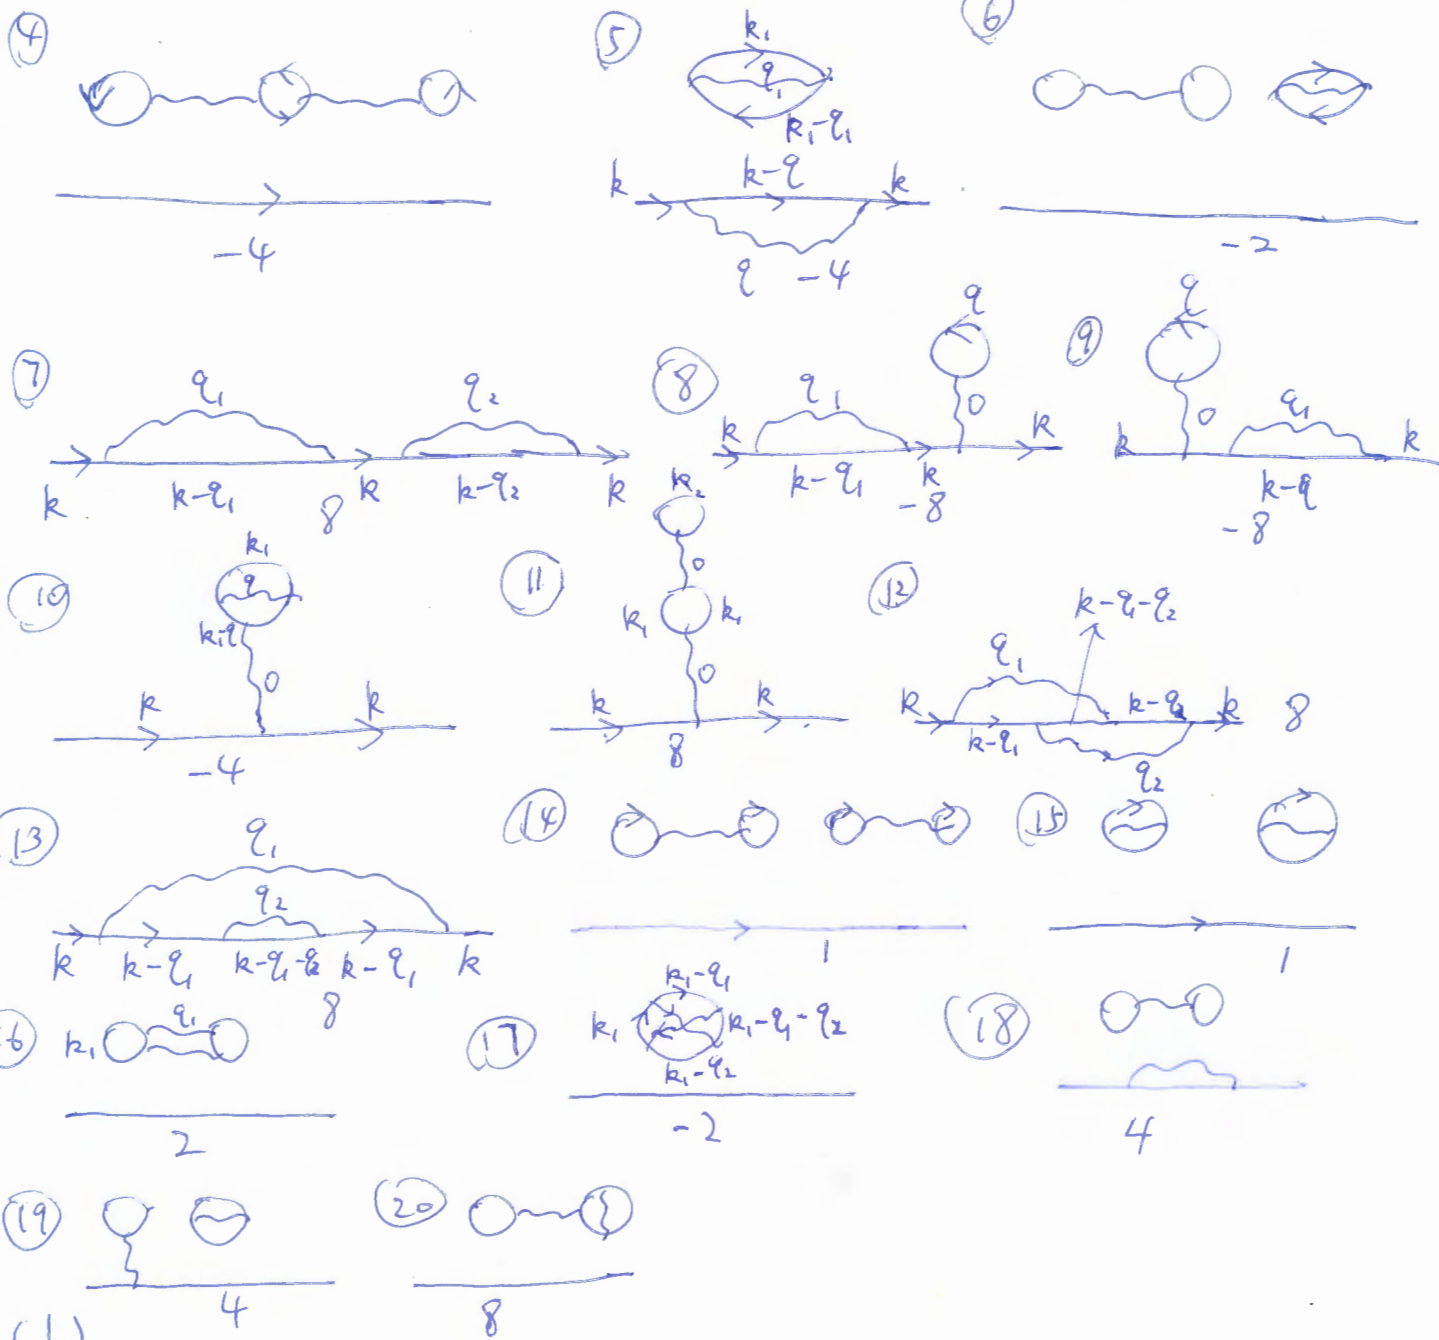 ④ ⑤ ⑥
k₁
q₁
k₁-q₁
k k-q k
-4 q -4 -2
⑦ q₁ q₂ ⑧ q₁ q ⑨ q
0 0 q₁
k k-q₁ 8 k k-q₂ k
k k-q₁ k k
-8
k k-q k
-8
⑩ k₁
q
k₁-q
0
k k
-4
⑪ k₂
0
k₁ k₁
0
k k
8
⑫ k-q₁-q₂
q₁
k k-q₁ k-q₂ k 8
q₂
⑬ q₁
q₂
k k-q₁ k-q₁-q₂ k-q₁ k
8
⑭ 1
⑮ 1
k₁ q₁
2
⑰ k₁-q₁
k₁ k₁-q₁-q₂
k₁-q₂
-2
⑱ 4
⑲ 4
⑳ 8